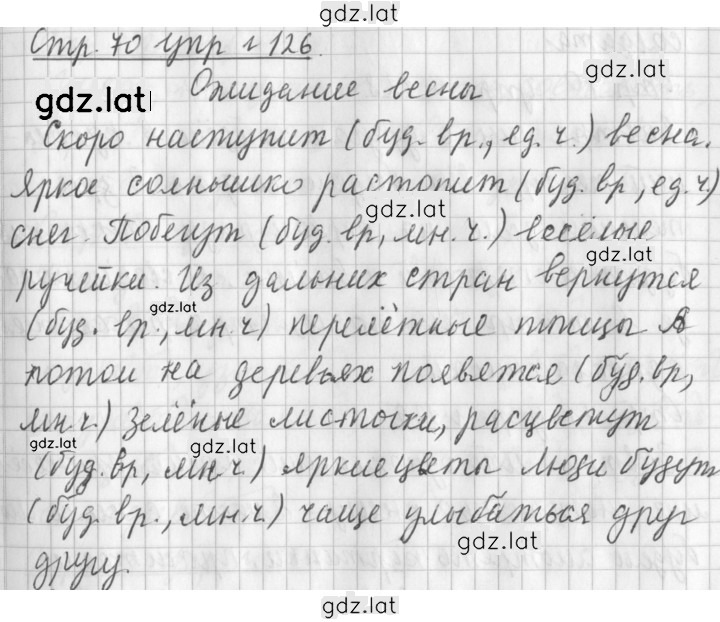 gdz.lat
Стр. 70 упр г 126.
gdz.lat
Ожидание весны
gdz.lat
Скоро наступит (буд. вр., ед. ч.) весна.
Яркое солнышко растопит (буд. вр, ед. ч.)
gdz.lat
снег. Побегут (буд. вр, мн. ч.) весёлые
gdz.lat
ручейки. Из дальних стран вернутся
gdz.lat
(буд. вр., мн. ч) перелётные птицы А
потом на деревьях появятся (буд. вр,
мн. ч.) зелёные листочки, расцветут
gdz.lat gdz.lat
(буд. вр, мн. ч.) яркие цветы Люди будут
(буд. вр., мн. ч.) чаще улыбаться друг
gdz.lat
другу.
gdz.lat